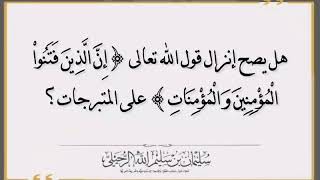 هل يصح إنزال قول الله تعالى ﴿ إِنَّ الَّذِينَ فَتَنُواْ
الْمُؤْمِنِينَ وَالْمُؤْمِنَاتِ ﴾ على المتبرجات ؟
سليمان بن سليم الله الرحيلي